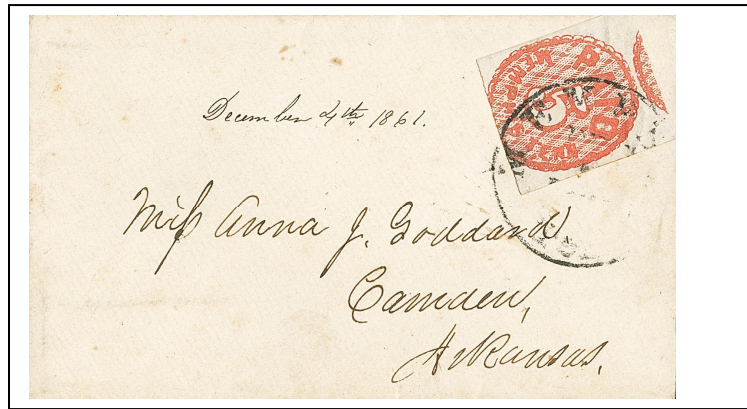 December 4th 1861.
Miss Anna J. Goddard
Camden,
Arkansas.
PAID
5